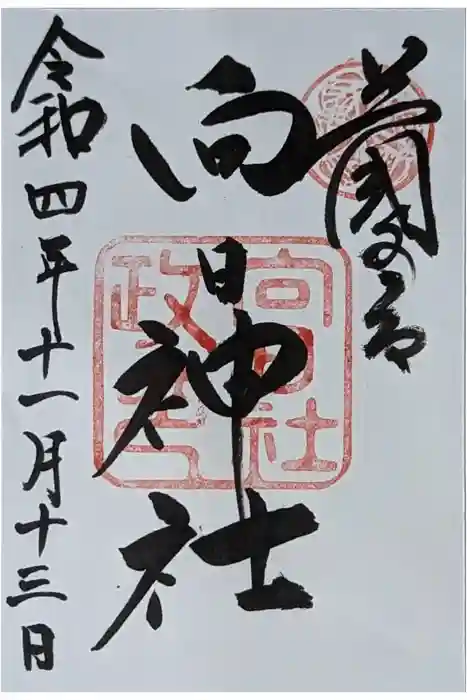 國の
向日神社
令和四年十一月十三日